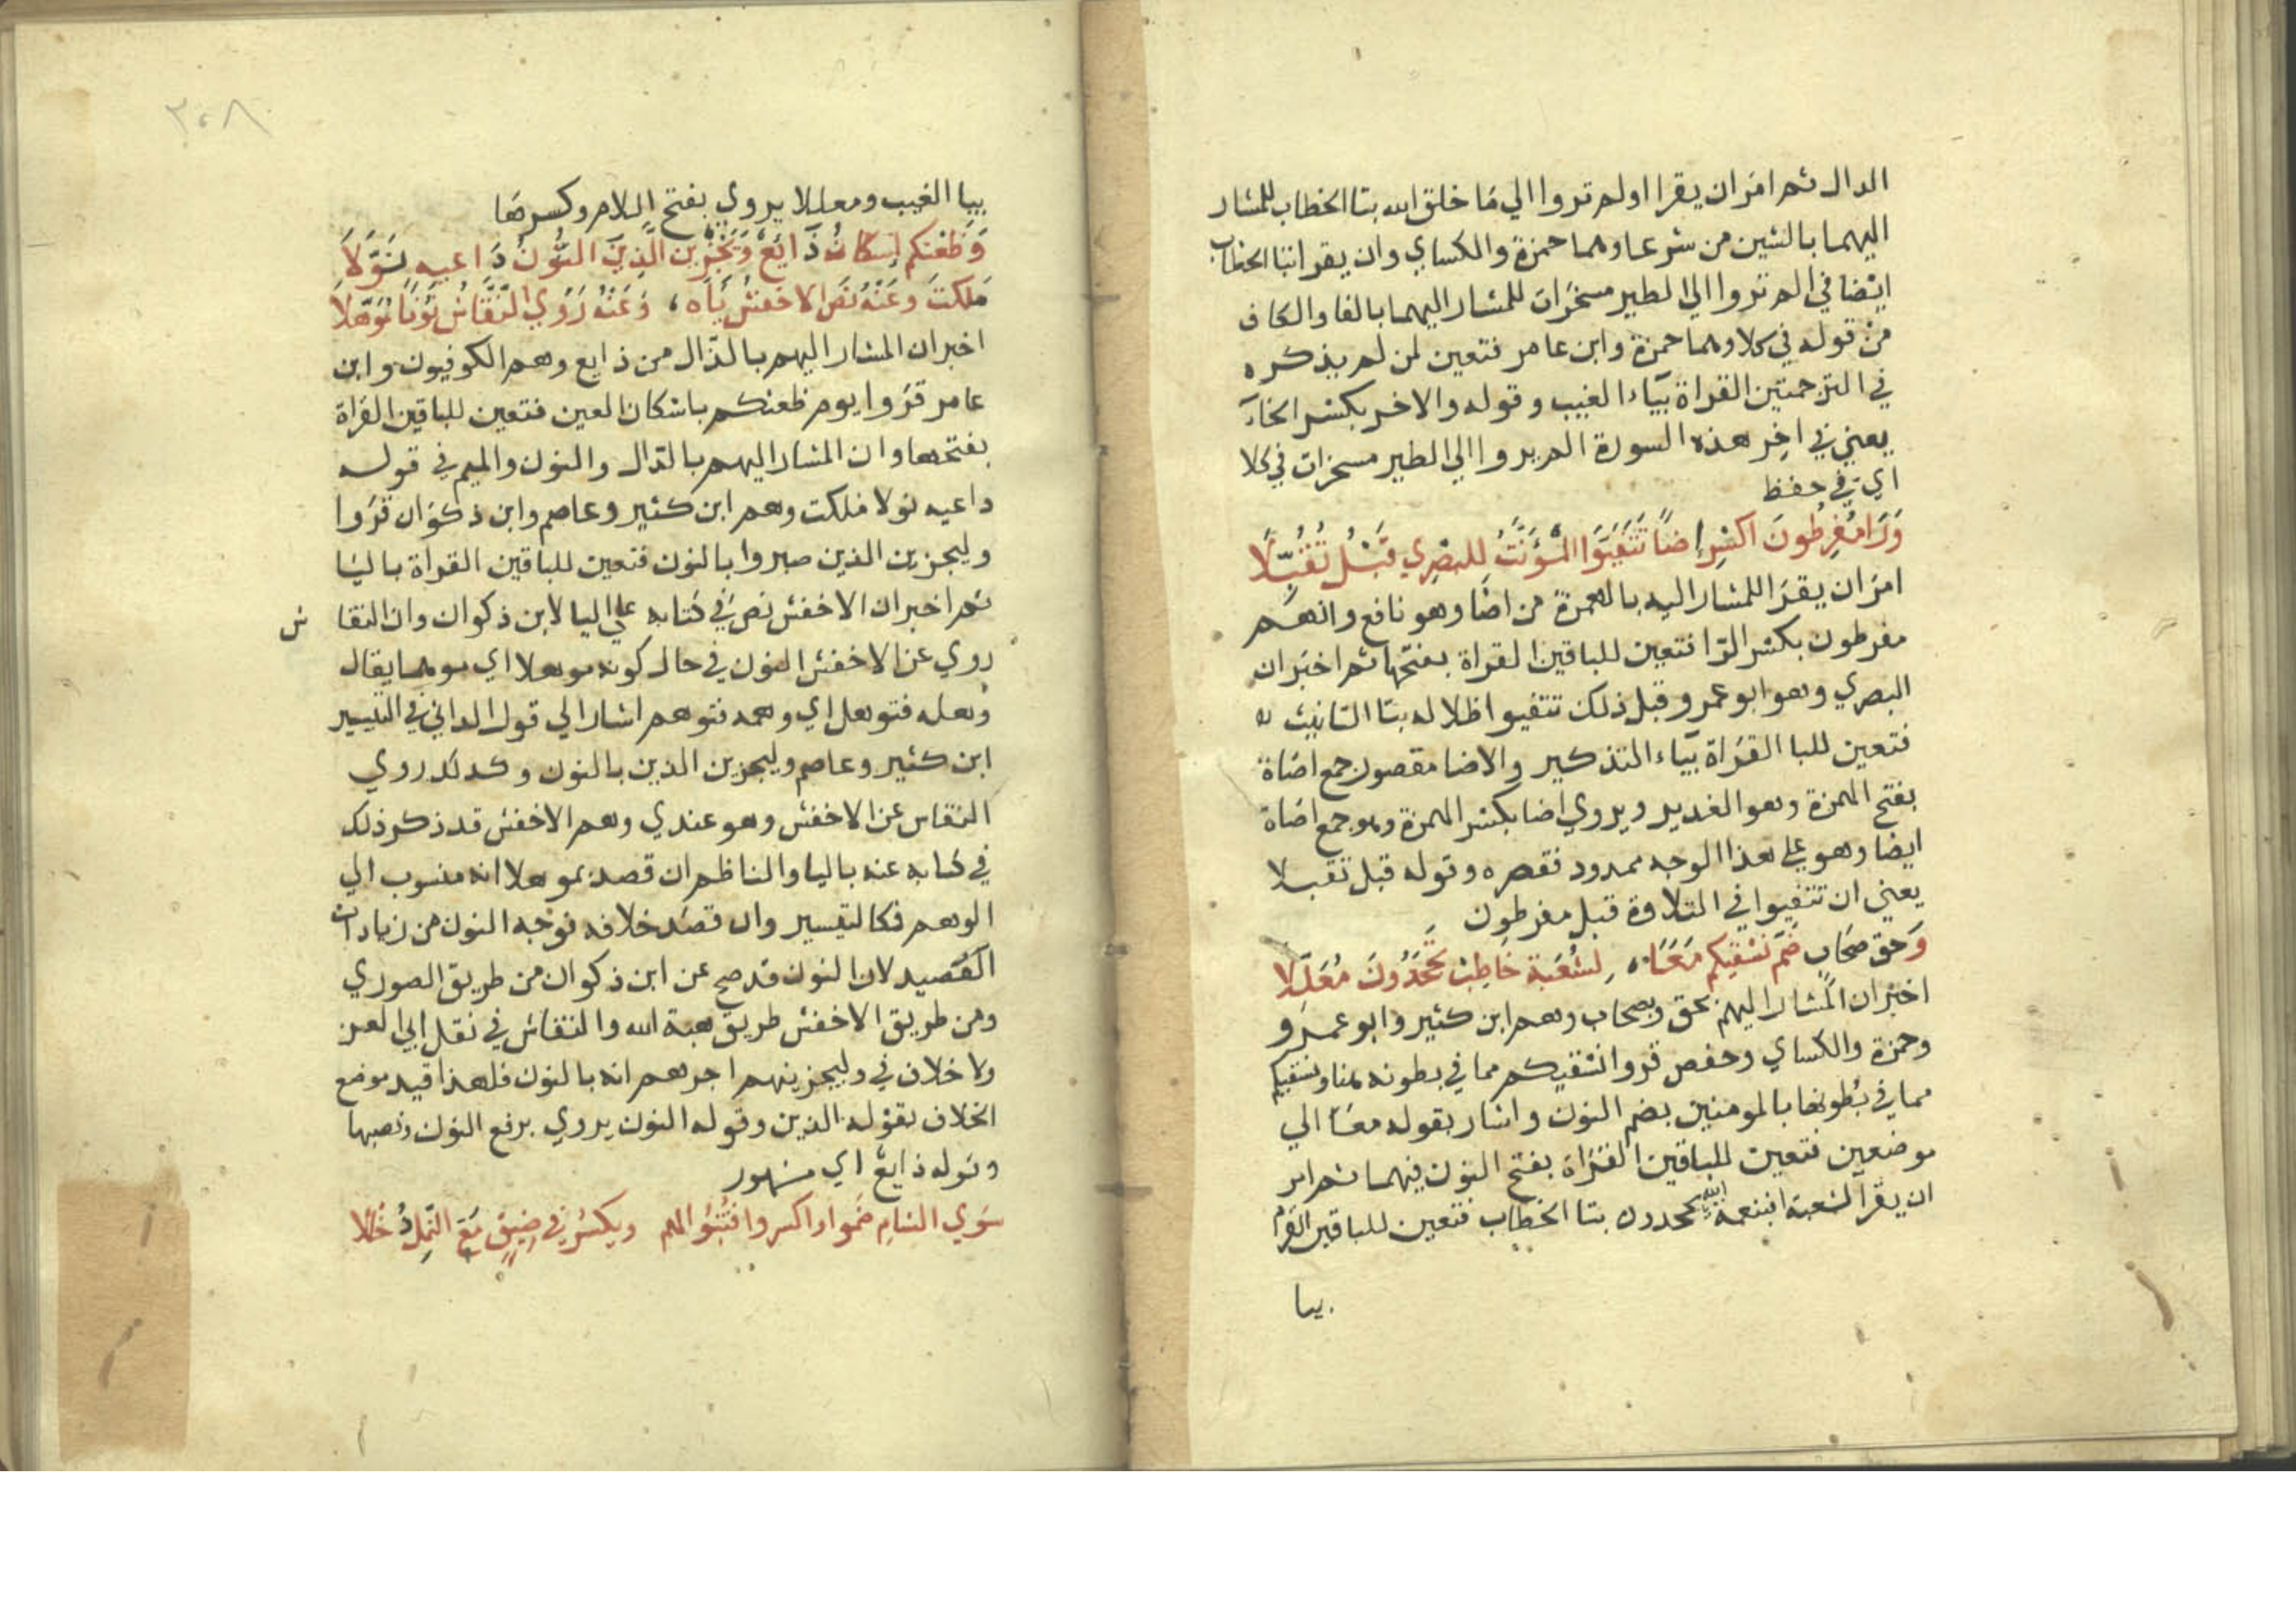 الدال ثم امر ان يقرا اولم تروا الي ما خلق الله بتا الخطاب للمشار
اليهما بالشين من شرعا وهما حمزة والكساي وان يقرا بتا الخطاب
ايضا في الم تروا الي الطير مسخرات للمشار اليهما بالفا والكاف
من قوله في كلا وهما حمزة وابن عامر فتعين لمن لم يذكره
في الترجمتين القراة بياء الغيب وقوله والاخر بكسر الخاء
يعني في اخر هذه السورة الم يروا الي الطير مسخرات في كلا
اي في حفظ
وَرَا مُفْرِطُونَ اكسْرِ اضاً تَتَفَيَّوا المُؤَنَّثُ للبَصْرِي قَبْلُ تُقُبِّلَا
امر ان يقرا للمشار اليه بالهمزة من اضا وهو نافع وانهم
مفرطون بكسر الرا فتعين للباقين القراة بفتحها ثم اخبر ان
البصري وهو ابو عمرو قبل ذلك تتفيوا ظلاله بتا التانيث
فتعين للبا القراة بياء التذكير والاضا مقصور جمع اضاة
بفتح الهمزة وهو الغدير ويروي اضا بكسر الهمزة وهو جمع اضاة
ايضا وهو علي هذا الوجه ممدود فقصره وقوله قبل تقبلا
يعني ان تتفيوا في التلاوة قبل مفرطون
وَحق صحَابٍ ضَمَّ نَسْقيكم مَعًا، لِشُعْبَةَ خَاطِبْ تَجْحَدُونَ مُعَلَّلَا
اخبر ان المشار اليهم بحق وبصحاب وهم ابن كثير وابو عمرو
وحمزة والكساي وحفص قروا نسقيكم مما في بطونه هنا ونسقيكم
مما في بطونها بالمومنين بضم النون واشار بقوله معا الي
موضعين فتعين للباقين القراة بفتح النون فيهما ثم امر
ان يقرا لشعبة افبنعمة الله يجحدون بتا الخطاب فتعين للباقين القراة
بيا
٣٠٨
بيا الغيب ومعللا يروي بفتح اللام وكسرها
وَظَعْنكم اسْكانُهُ ذَايِعٌ وَيَجْزِيَنَّ الَّذِينَ النُّونُ دَاعيهِ نُوِّلَا
مَلكتَ وعَنْهُ نَصَّ الاخفشُ ياه، وَعَنْهُ رَوَي النَّقَّاشُ نُونًا مُوَهَّلَا
اخبر ان المشار اليهم بالذال من ذايع وهم الكوفيون وابن
عامر قروا يوم ظعنكم باسكان العين فتعين للباقين القراة
بفتحها وان المشار اليهم بالدال والنون والميم في قوله
داعيه نولا ملكت وهم ابن كثير وعاصم وابن ذكوان قروا
وليجزين الذين صبروا بالنون فتعين للباقين القراة باليا
ثم اخبر ان الاخفش نص في كتابه علي اليا لابن ذكوان وان النقاش
روي عن الاخفش النون في حال كونه موهلا اي موهما يقال
وهله فتوهل اي وهمه فتوهم اشار الي قول الداني في التيسير
ابن كثير وعاصم وليجزين الذين بالنون وكذلك روي
النقاس عن الاخفش وهو عندي وهم الاخفش قد ذكر ذلك
في كتابه عنه باليا والناظم ان قصد بموهلا انه منسوب الي
الوهم فكالتيسير وان قصد خلافه فوجه النون من زيادات
القصيد لان النون قد صح عن ابن ذكوان من طريق الصوري
ومن طريق الاخفش طريق هبة الله والنقاش في نقل ابي العز
ولا خلاف في وليجزينهم اجرهم انه بالنون فلهذا قيد موضع
الخلاف بقوله الذين وقوله النون يروي برفع النون ونصبها
وقوله ذايع اي مشهور
سَوِي الشامِ ضموا واكسروا فتنوا لهم ويكسر في ضيق مَعَ النَّملِ دُخْلُلَا